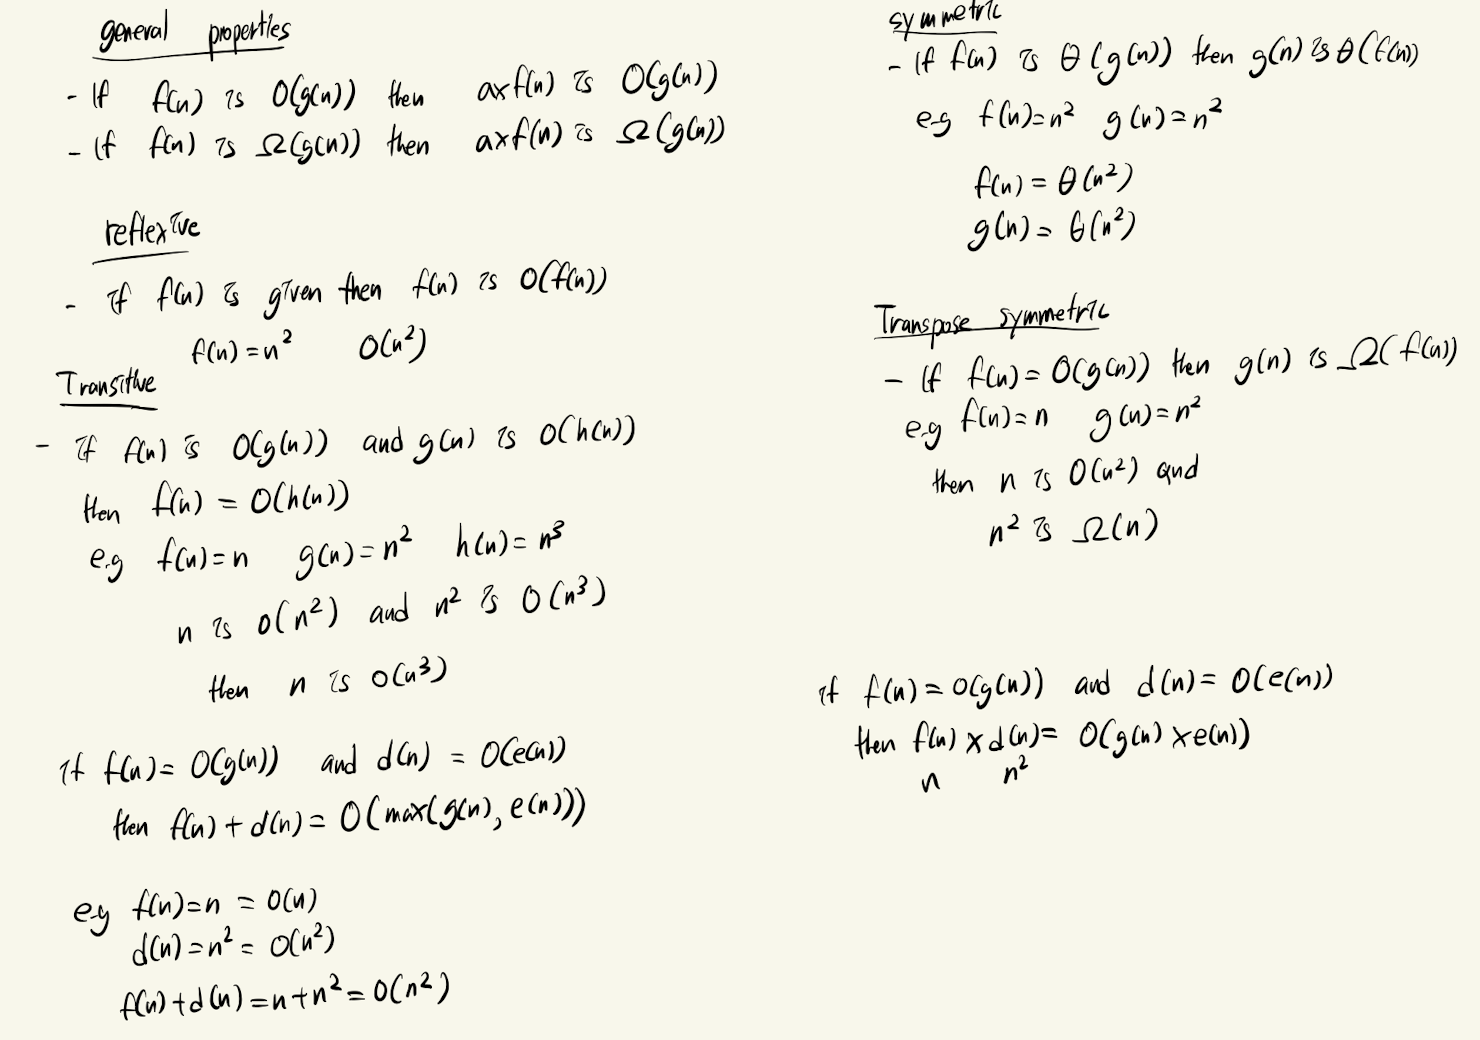 general properties
- If f(n) is O(g(n)) then axf(n) is O(g(n))
- If f(n) is Ω(g(n)) then axf(n) is Ω(g(n))
reflexive
- if f(n) is given then f(n) is O(f(n))
f(n) = n² O(n²)
Transitive
- if f(n) is O(g(n)) and g(n) is O(h(n))
then f(n) = O(h(n))
e.g f(n) = n g(n) = n² h(n) = n³
n is O(n²) and n² is O(n³)
then n is O(n³)
if f(n) = O(g(n)) and d(n) = O(e(n))
then f(n) + d(n) = O(max(g(n), e(n)))
eg f(n) = n = O(n)
d(n) = n² = O(n²)
f(n) + d(n) = n + n² = O(n²)
symmetric
- If f(n) is θ(g(n)) then g(n) is θ(f(n))
eg f(n) = n² g(n) = n²
f(n) = θ(n²)
g(n) = θ(n²)
Transpose symmetric
- If f(n) = O(g(n)) then g(n) is Ω(f(n))
e.g f(n) = n g(n) = n²
then n is O(n²) and
n² is Ω(n)
if f(n) = O(g(n)) and d(n) = O(e(n))
then f(n) × d(n) = O(g(n) × e(n))
n n²